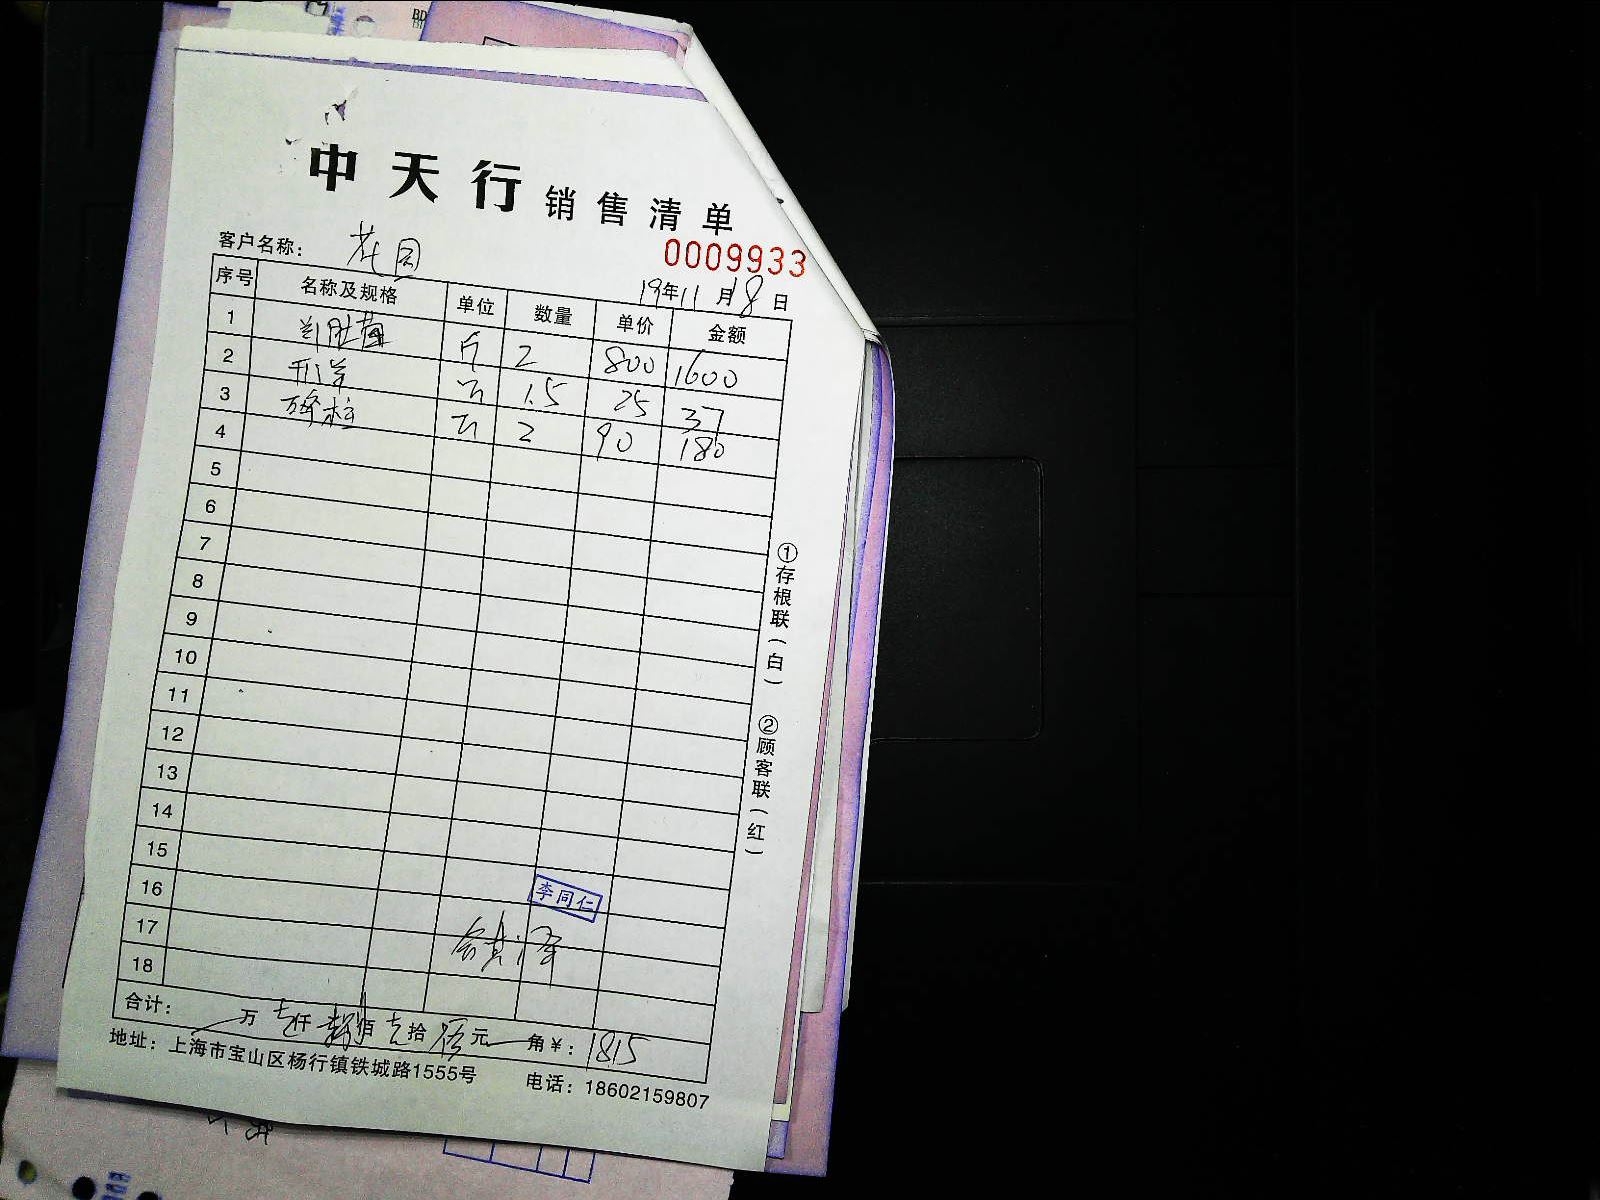 中天行 销售清单
客户名称： 花园
0009933
19年11月18日
序号 名称及规格 单位 数量 单价 金额
1 羊肚菌 斤 2 800 1600
2 开洋 斤 1.5 25 37
3 瑶柱 斤 2 90 180
4
5
6
7
8
9
10
11
12
13
14
15
16
17
18
李同仁
合计： 万 壹仟 捌佰 壹拾 伍元 角￥： 1815
地址：上海市宝山区杨行镇铁城路1555号 电话：18602159807
①存根联（白）
②顾客联（红）